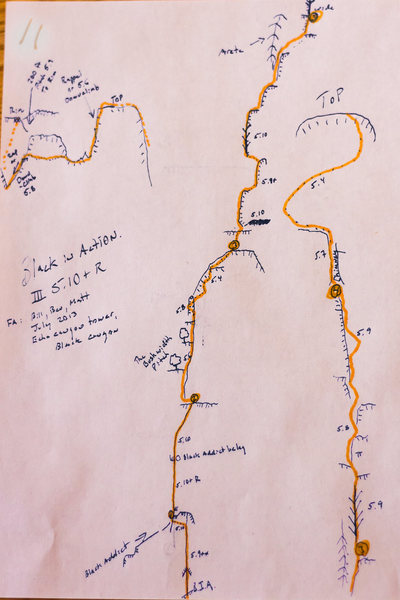 11
wide
Arete
5.10
5.9+
5.10
TOP
5.4
5.7
Chimney
5.9
5.8
5.9
Rappel
or 5.6
Downclimb
TOP
Down
Climb
5.8
Black in Action.
III 5.10+ R
FA: Bill, Ben, Matt
July 2013
Echo canyon tower,
Black Canyon
5.4
5.8
The
Boshwidth
Pitch
5.10
Black Addict belay
5.10+ R
Black Addict
5.9+
B.I.A.